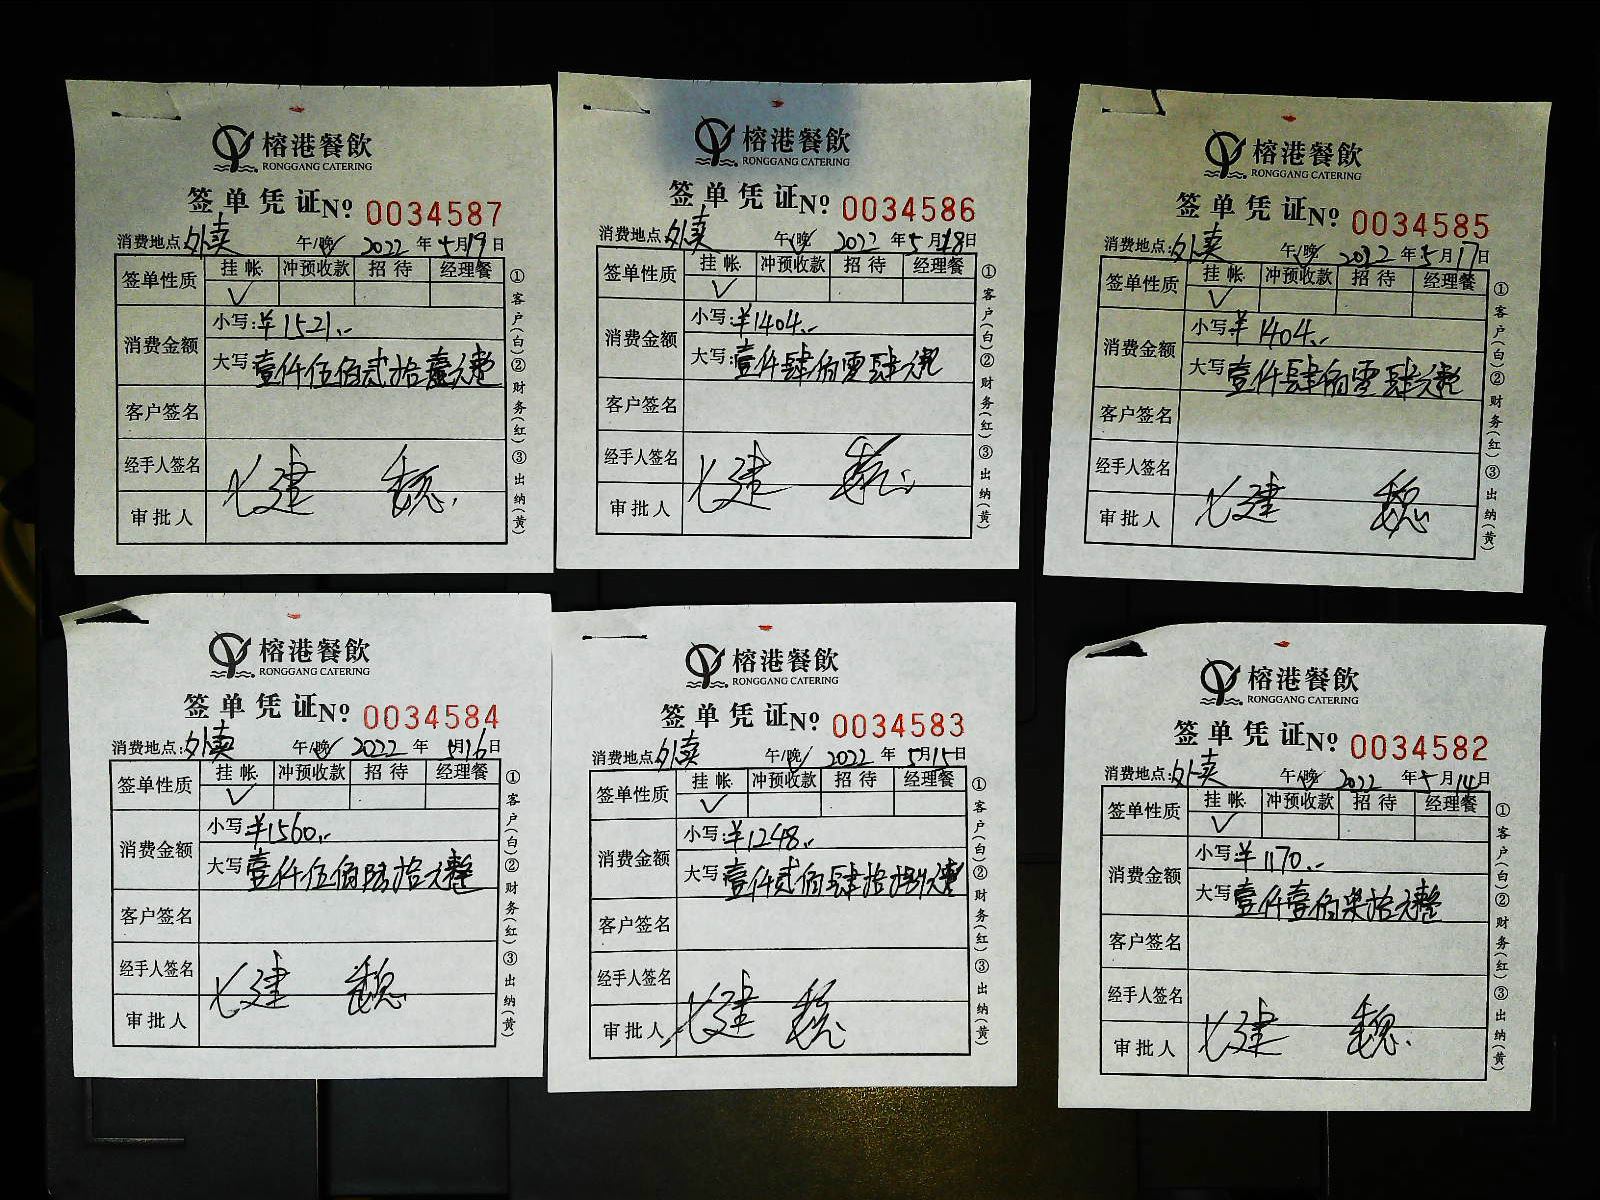 榕港餐飲
RONGGANG CATERING
签单凭证 Nº 0034587
消费地点:外卖 午/晚✓ 2022年5月19日
签单性质 挂帐 冲预收款 招待 经理餐
✓
消费金额 小写:¥1521.-
大写 壹仟伍佰贰拾壹元整
客户签名
经手人签名
审批人
①客户(白)②财务(红)③出纳(黄)
榕港餐飲
RONGGANG CATERING
签单凭证 Nº 0034586
消费地点:外卖 午/晚✓ 2022年5月18日
签单性质 挂帐 冲预收款 招待 经理餐
✓
消费金额 小写:¥1404.-
大写:壹仟肆佰零肆元整
客户签名
经手人签名
审批人
①客户(白)②财务(红)③出纳(黄)
榕港餐飲
RONGGANG CATERING
签单凭证 Nº 0034585
消费地点:外卖 午/晚✓ 2022年5月17日
签单性质 挂帐 冲预收款 招待 经理餐
✓
消费金额 小写:¥1404.-
大写:壹仟肆佰零肆元整
客户签名
经手人签名
审批人
①客户(白)②财务(红)③出纳(黄)
榕港餐飲
RONGGANG CATERING
签单凭证 Nº 0034584
消费地点:外卖 午/晚✓ 2022年5月16日
签单性质 挂帐 冲预收款 招待 经理餐
✓
消费金额 小写:¥1560.-
大写:壹仟伍佰陆拾元整
客户签名
经手人签名
审批人
①客户(白)②财务(红)③出纳(黄)
榕港餐飲
RONGGANG CATERING
签单凭证 Nº 0034583
消费地点:外卖 午/晚✓ 2022年5月15日
签单性质 挂帐 冲预收款 招待 经理餐
✓
消费金额 小写:¥1248.-
大写:壹仟贰佰肆拾捌元整
客户签名
经手人签名
审批人
①客户(白)②财务(红)③出纳(黄)
榕港餐飲
RONGGANG CATERING
签单凭证 Nº 0034582
消费地点:外卖 午/晚✓ 2022年5月14日
签单性质 挂帐 冲预收款 招待 经理餐
✓
消费金额 小写:¥1170.-
大写:壹仟壹佰柒拾元整
客户签名
经手人签名
审批人
①客户(白)②财务(红)③出纳(黄)